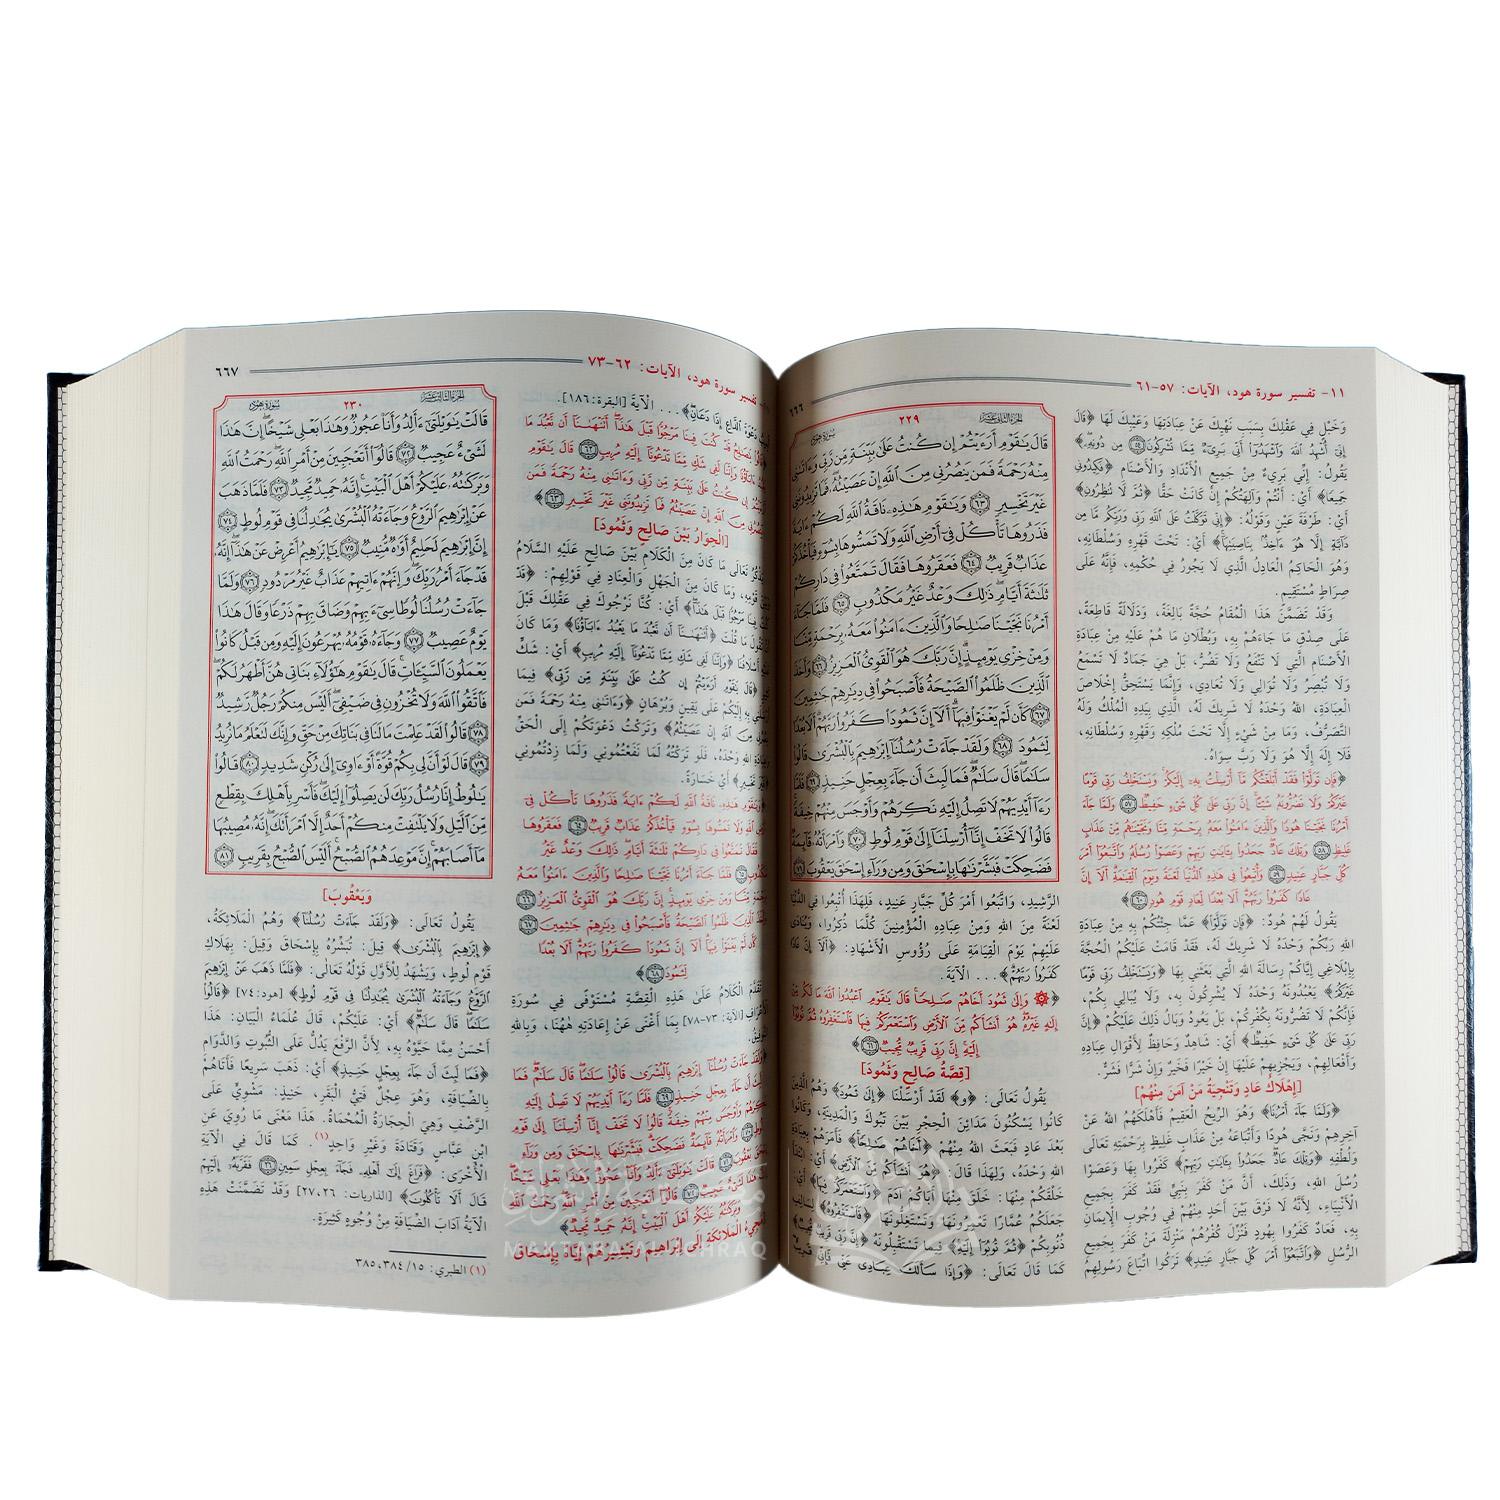 ١١- تفسير سورة هود، الآيات: ٥٧-٦١
٦٦٦
وَخَبَلٍ فِي عَقْلِكَ بِسَبَبِ نَهْيِكَ عَنْ عِبَادَتِهَا وَعَيْبِكَ لَهَا ﴿قَالَ
إِنِّي أُشْهِدُ اللَّهَ وَاشْهَدُوا أَنِّي بَرِيءٌ مِمَّا تُشْرِكُونَ ﴿٥٤﴾ مِن دُونِهِ﴾
يَقُولُ: إِنِّي بَرِيءٌ مِنْ جَمِيعِ الْأَنْدَادِ وَالْأَصْنَامِ ﴿فَكِيدُونِي
جَمِيعًا﴾ أَيْ: أَنْتُمْ وَآلِهَتُكُمْ إِنْ كَانَتْ حَقًّا ﴿ثُمَّ لَا تُنظِرُونِ﴾
أَيْ: طَرْفَةَ عَيْنٍ وَقَوْلُهُ: ﴿إِنِّي تَوَكَّلْتُ عَلَى اللَّهِ رَبِّي وَرَبِّكُم مَّا مِن
دَابَّةٍ إِلَّا هُوَ آخِذٌ بِنَاصِيَتِهَا﴾ أَيْ: تَحْتَ قَهْرِهِ وَسُلْطَانِهِ،
وَهُوَ الْحَاكِمُ الْعَادِلُ الَّذِي لَا يَجُورُ فِي حُكْمِهِ، فَإِنَّهُ عَلَى
صِرَاطٍ مُسْتَقِيمٍ.
وَقَدْ تَضَمَّنَ هَذَا الْمَقَامُ حُجَّةً بَالِغَةً، وَدَلَالَةً قَاطِعَةً،
عَلَى صِدْقِ مَا جَاءَهُمْ بِهِ، وَبُطْلَانِ مَا هُمْ عَلَيْهِ مِنْ عِبَادَةِ
الْأَصْنَامِ الَّتِي لَا تَنْفَعُ وَلَا تَضُرُّ، بَلْ هِيَ جَمَادٌ لَا تَسْمَعُ
وَلَا تُبْصِرُ وَلَا تُوَالِي وَلَا تُعَادِي، وَإِنَّمَا يَسْتَحِقُّ إِخْلَاصَ
الْعِبَادَةِ، اللهُ وَحْدَهُ لَا شَرِيكَ لَهُ، الَّذِي بِيَدِهِ الْمُلْكُ وَلَهُ
التَّصَرُّفُ، وَمَا مِنْ شَيْءٍ إِلَّا تَحْتَ مُلْكِهِ وَقَهْرِهِ وَسُلْطَانِهِ،
فَلَا إِلَهَ إِلَّا هُوَ وَلَا رَبَّ سِوَاهُ.
﴿فَإِن تَوَلَّوْا فَقَدْ أَبْلَغْتُكُم مَّا أُرْسِلْتُ بِهِ إِلَيْكُمْ وَيَسْتَخْلِفُ رَبِّي قَوْمًا
غَيْرَكُمْ وَلَا تَضُرُّونَهُ شَيْئًا إِنَّ رَبِّي عَلَى كُلِّ شَيْءٍ حَفِيظٌ ﴿٥٧﴾ وَلَمَّا جَاءَ
أَمْرُنَا نَجَّيْنَا هُودًا وَالَّذِينَ آمَنُوا مَعَهُ بِرَحْمَةٍ مِّنَّا وَنَجَّيْنَاهُم مِّنْ عَذَابٍ
غَلِيظٍ ﴿٥٨﴾ وَتِلْكَ عَادٌ جَحَدُوا بِآيَاتِ رَبِّهِمْ وَعَصَوْا رُسُلَهُ وَاتَّبَعُوا أَمْرَ
كُلِّ جَبَّارٍ عَنِيدٍ ﴿٥٩﴾ وَأُتْبِعُوا فِي هَذِهِ الدُّنْيَا لَعْنَةً وَيَوْمَ الْقِيَامَةِ أَلَا إِنَّ
عَادًا كَفَرُوا رَبَّهُمْ أَلَا بُعْدًا لِّعَادٍ قَوْمِ هُودٍ ﴿٦٠﴾
يَقُولُ لَهُمْ هُودٌ: ﴿فَإِن تَوَلَّوْا﴾ عَمَّا جِئْتُكُمْ بِهِ مِنْ عِبَادَةِ
اللهِ رَبِّكُمْ وَحْدَهُ لَا شَرِيكَ لَهُ، فَقَدْ قَامَتْ عَلَيْكُمُ الْحُجَّةُ
بِإِبْلَاغِي إِيَّاكُمْ رِسَالَةَ اللهِ الَّتِي بَعَثَنِي بِهَا ﴿وَيَسْتَخْلِفُ رَبِّي قَوْمًا
غَيْرَكُمْ﴾ يَعْبُدُونَهُ وَحْدَهُ لَا يُشْرِكُونَ بِهِ، وَلَا يُبَالِي بِكُمْ،
فَإِنَّكُمْ لَا تَضُرُّونَهُ بِكُفْرِكُمْ، بَلْ يَعُودُ وَبَالُ ذَلِكَ عَلَيْكُمْ ﴿إِنَّ
رَبِّي عَلَى كُلِّ شَيْءٍ حَفِيظٌ﴾ أَيْ: شَاهِدٌ وَحَافِظٌ لِأَقْوَالِ عِبَادِهِ
وَأَفْعَالِهِمْ، وَيَجْزِيهِمْ عَلَيْهَا إِنْ خَيْرًا فَخَيْرٌ وَإِنْ شَرًّا فَشَرٌّ.
[إِهْلَاكُ عَادٍ وَتَنْجِيَةُ مَنْ آمَنَ مِنْهُمْ]
﴿وَلَمَّا جَاءَ أَمْرُنَا﴾ وَهُوَ الرِّيحُ الْعَقِيمُ فَأَهْلَكَهُمُ اللهُ عَنْ
آخِرِهِمْ وَنَجَّى هُودًا وَأَتْبَاعَهُ مِنْ عَذَابٍ غَلِيظٍ بِرَحْمَتِهِ تَعَالَى
وَلُطْفِهِ ﴿وَتِلْكَ عَادٌ جَحَدُوا بِآيَاتِ رَبِّهِمْ﴾ كَفَرُوا بِهَا وَعَصَوْا
رُسُلَ اللهِ، وَذَلِكَ، أَنَّ مَنْ كَفَرَ بِنَبِيٍّ فَقَدْ كَفَرَ بِجَمِيعِ
الْأَنْبِيَاءِ، لِأَنَّهُ لَا فَرْقَ بَيْنَ أَحَدٍ مِنْهُمْ فِي وُجُوبِ الْإِيمَانِ
بِهِ، فَعَادٌ كَفَرُوا بِهُودٍ فَنُزِّلَ كُفْرُهُمْ بِهِ مَنْزِلَةَ مَنْ كَفَرَ بِجَمِيعِ
الرُّسُلِ ﴿وَاتَّبَعُوا أَمْرَ كُلِّ جَبَّارٍ عَنِيدٍ﴾ تَرَكُوا اتِّبَاعَ رَسُولِهِمُ
الجزء الثاني عشر ٢٢٩ سورة هود
قَالَ يَاقَوْمِ أَرَأَيْتُمْ إِن كُنتُ عَلَى بَيِّنَةٍ مِّن رَّبِّي وَآتَانِي
مِنْهُ رَحْمَةً فَمَن يَنصُرُنِي مِنَ اللَّهِ إِنْ عَصَيْتُهُ فَمَا تَزِيدُونَنِي
غَيْرَ تَخْسِيرٍ ﴿٦٣﴾ وَيَاقَوْمِ هَذِهِ نَاقَةُ اللَّهِ لَكُمْ آيَةً
فَذَرُوهَا تَأْكُلْ فِي أَرْضِ اللَّهِ وَلَا تَمَسُّوهَا بِسُوءٍ فَيَأْخُذَكُمْ
عَذَابٌ قَرِيبٌ ﴿٦٤﴾ فَعَقَرُوهَا فَقَالَ تَمَتَّعُوا فِي دَارِكُمْ
ثَلَاثَةَ أَيَّامٍ ذَلِكَ وَعْدٌ غَيْرُ مَكْذُوبٍ ﴿٦٥﴾ فَلَمَّا جَاءَ
أَمْرُنَا نَجَّيْنَا صَالِحًا وَالَّذِينَ آمَنُوا مَعَهُ بِرَحْمَةٍ مِّنَّا
وَمِنْ خِزْيِ يَوْمِئِذٍ إِنَّ رَبَّكَ هُوَ الْقَوِيُّ الْعَزِيزُ ﴿٦٦﴾ وَأَخَذَ
الَّذِينَ ظَلَمُوا الصَّيْحَةُ فَأَصْبَحُوا فِي دِيَارِهِمْ جَاثِمِينَ
﴿٦٧﴾ كَأَن لَّمْ يَغْنَوْا فِيهَا أَلَا إِنَّ ثَمُودَا كَفَرُوا رَبَّهُمْ أَلَا بُعْدًا
لِّثَمُودَ ﴿٦٨﴾ وَلَقَدْ جَاءَتْ رُسُلُنَا إِبْرَاهِيمَ بِالْبُشْرَى قَالُوا
سَلَامًا قَالَ سَلَامٌ فَمَا لَبِثَ أَن جَاءَ بِعِجْلٍ حَنِيذٍ ﴿٦٩﴾ فَلَمَّا
رَأَى أَيْدِيَهُمْ لَا تَصِلُ إِلَيْهِ نَكِرَهُمْ وَأَوْجَسَ مِنْهُمْ خِيفَةً
قَالُوا لَا تَخَفْ إِنَّا أُرْسِلْنَا إِلَى قَوْمِ لُوطٍ ﴿٧٠﴾ وَامْرَأَتُهُ قَائِمَةٌ
فَضَحِكَتْ فَبَشَّرْنَاهَا بِإِسْحَاقَ وَمِن وَرَاءِ إِسْحَاقَ يَعْقُوبَ ﴿٧١﴾
الرَّشِيدِ، وَاتَّبَعُوا أَمْرَ كُلِّ جَبَّارٍ عَنِيدٍ، فَلِهَذَا أُتْبِعُوا فِي الدُّنْيَا
لَعْنَةً مِنَ اللهِ وَمِنْ عِبَادِهِ الْمُؤْمِنِينَ كُلَّمَا ذُكِرُوا، وَيُنَادَى
عَلَيْهِمْ يَوْمَ الْقِيَامَةِ عَلَى رُؤُوسِ الْأَشْهَادِ: ﴿أَلَا إِنَّ عَادًا
كَفَرُوا رَبَّهُمْ﴾ ... الْآيَةَ.
﴿وَإِلَى ثَمُودَ أَخَاهُمْ صَالِحًا قَالَ يَاقَوْمِ اعْبُدُوا اللَّهَ مَا لَكُم مِّنْ
إِلَهٍ غَيْرُهُ هُوَ أَنشَأَكُم مِّنَ الْأَرْضِ وَاسْتَعْمَرَكُمْ فِيهَا فَاسْتَغْفِرُوهُ ثُمَّ تُوبُوا
إِلَيْهِ إِنَّ رَبِّي قَرِيبٌ مُّجِيبٌ ﴿٦١﴾
[قِصَّةُ صَالِحٍ وَثَمُودَ]
يَقُولُ تَعَالَى: ﴿وَ﴾ لَقَدْ أَرْسَلْنَا ﴿إِلَى ثَمُودَ﴾ وَهُمُ الَّذِينَ
كَانُوا يَسْكُنُونَ مَدَائِنَ الْحِجْرِ بَيْنَ تَبُوكَ وَالْمَدِينَةِ، وَكَانُوا
بَعْدَ عَادٍ فَبَعَثَ اللهُ مِنْهُمْ ﴿أَخَاهُمْ صَالِحًا﴾ فَأَمَرَهُمْ بِعِبَادَةِ
اللهِ وَحْدَهُ، وَلِهَذَا قَالَ: ﴿هُوَ أَنشَأَكُم مِّنَ الْأَرْضِ﴾ أَيْ:
خَلَقَكُمْ مِنْهَا: خَلَقَ مِنْهَا أَبَاكُمْ آدَمَ ﴿وَاسْتَعْمَرَكُمْ فِيهَا﴾ أَيْ:
جَعَلَكُمْ عُمَّارًا تَعْمُرُونَهَا وَتَسْتَغِلُّونَهَا ﴿فَاسْتَغْفِرُوهُ﴾ لِسَالِفِ
ذُنُوبِكُمْ ﴿ثُمَّ تُوبُوا إِلَيْهِ﴾ فِيمَا تَسْتَقْبِلُونَهُ ﴿إِنَّ رَبِّي قَرِيبٌ
كَمَا قَالَ تَعَالَى: ﴿وَإِذَا سَأَلَكَ عِبَادِي عَنِّي فَإِنِّي قَرِيبٌ
تفسير سورة هود، الآيات: ٦٢-٧٣
٦٦٧
دَعْوَةَ الدَّاعِ إِذَا دَعَانِ﴾ ... الْآيَةَ [البقرة:١٨٦].
أَتَنْهَانَا أَن نَّعْبُدَ مَا
وَإِنَّنَا لَفِي شَكٍّ مِّمَّا تَدْعُونَا إِلَيْهِ مُرِيبٍ ﴿٦٢﴾ قَالَ يَاقَوْمِ
إِن كُنتُ عَلَى بَيِّنَةٍ مِّن رَّبِّي وَآتَانِي مِنْهُ رَحْمَةً فَمَن
مِنَ اللَّهِ إِنْ عَصَيْتُهُ فَمَا تَزِيدُونَنِي غَيْرَ تَخْسِيرٍ ﴿٦٣﴾
[الْحِوَارُ بَيْنَ صَالِحٍ وَثَمُودَ]
تَعَالَى مَا كَانَ مِنَ الْكَلَامِ بَيْنَ صَالِحٍ عَلَيْهِ السَّلَامُ
وَمَا كَانَ مِنَ الْجَهْلِ وَالْعِنَادِ فِي قَوْلِهِمْ: ﴿قَدْ
مَرْجُوًّا قَبْلَ هَذَا﴾ أَيْ: كُنَّا نَرْجُوكَ فِي عَقْلِكَ قَبْلَ
مَا قُلْتَ ﴿أَتَنْهَانَا أَن نَّعْبُدَ مَا يَعْبُدُ آبَاؤُنَا﴾ وَمَا كَانَ
﴿وَإِنَّنَا لَفِي شَكٍّ مِّمَّا تَدْعُونَا إِلَيْهِ مُرِيبٍ﴾ أَيْ: شَكٍّ
﴿قَالَ يَاقَوْمِ أَرَأَيْتُمْ إِن كُنتُ عَلَى بَيِّنَةٍ مِّن رَّبِّي﴾ فِيمَا
إِلَيْكُمْ عَلَى يَقِينٍ وَبُرْهَانٍ ﴿وَآتَانِي مِنْهُ رَحْمَةً فَمَن
مِنَ اللَّهِ إِنْ عَصَيْتُهُ﴾ وَتَرَكْتُ دَعْوَتَكُمْ إِلَى الْحَقِّ
وَحْدَهُ، فَلَوْ تَرَكْتُهُ لَمَا نَفَعْتُمُونِي وَلَمَا زِدْتُمُونِي
﴿غَيْرَ تَخْسِيرٍ﴾ أَيْ: خَسَارَةٍ.
هَذِهِ نَاقَةُ اللَّهِ لَكُمْ آيَةً فَذَرُوهَا تَأْكُلْ فِي
اللَّهِ وَلَا تَمَسُّوهَا بِسُوءٍ فَيَأْخُذَكُمْ عَذَابٌ قَرِيبٌ ﴿٦٤﴾ فَعَقَرُوهَا
فَقَالَ تَمَتَّعُوا فِي دَارِكُمْ ثَلَاثَةَ أَيَّامٍ ذَلِكَ وَعْدٌ غَيْرُ
﴿٦٥﴾ فَلَمَّا جَاءَ أَمْرُنَا نَجَّيْنَا صَالِحًا وَالَّذِينَ آمَنُوا مَعَهُ
مِنَّا وَمِنْ خِزْيِ يَوْمِئِذٍ إِنَّ رَبَّكَ هُوَ الْقَوِيُّ الْعَزِيزُ ﴿٦٦﴾
الَّذِينَ ظَلَمُوا الصَّيْحَةُ فَأَصْبَحُوا فِي دِيَارِهِمْ جَاثِمِينَ ﴿٦٧﴾
لَّمْ يَغْنَوْا فِيهَا أَلَا إِنَّ ثَمُودَا كَفَرُوا رَبَّهُمْ أَلَا بُعْدًا
لِّثَمُودَ ﴿٦٨﴾
تَقَدَّمَ الْكَلَامُ عَلَى هَذِهِ الْقِصَّةِ مُسْتَوْفًى فِي سُورَةِ
[الآية: ٧٣-٧٨] بِمَا أَغْنَى عَنْ إِعَادَتِهِ هَهُنَا، وَبِاللهِ
جَاءَتْ رُسُلُنَا إِبْرَاهِيمَ بِالْبُشْرَى قَالُوا سَلَامًا قَالَ سَلَامٌ فَمَا
لَبِثَ أَن جَاءَ بِعِجْلٍ حَنِيذٍ ﴿٦٩﴾ فَلَمَّا رَأَى أَيْدِيَهُمْ لَا تَصِلُ إِلَيْهِ
وَأَوْجَسَ مِنْهُمْ خِيفَةً قَالُوا لَا تَخَفْ إِنَّا أُرْسِلْنَا إِلَى قَوْمِ
وَامْرَأَتُهُ قَائِمَةٌ فَضَحِكَتْ فَبَشَّرْنَاهَا بِإِسْحَاقَ وَمِن وَرَاءِ
يَعْقُوبَ ﴿٧١﴾ قَالَتْ يَاوَيْلَتَى أَأَلِدُ وَأَنَا عَجُوزٌ وَهَذَا بَعْلِي شَيْخًا
عَجِيبٌ ﴿٧٢﴾ قَالُوا أَتَعْجَبِينَ مِنْ أَمْرِ اللَّهِ رَحْمَتُ اللَّهِ
وَبَرَكَاتُهُ عَلَيْكُمْ أَهْلَ الْبَيْتِ إِنَّهُ حَمِيدٌ مَّجِيدٌ﴾
الْمَلَائِكَةِ إِلَى إِبْرَاهِيمَ وَتَبْشِيرُهُمْ إِيَّاهُ بِإِسْحَاقَ
الجزء الثاني عشر ٢٣٠ سورة هود
قَالَتْ يَاوَيْلَتَى أَأَلِدُ وَأَنَا عَجُوزٌ وَهَذَا بَعْلِي شَيْخًا إِنَّ هَذَا
لَشَيْءٌ عَجِيبٌ ﴿٧٢﴾ قَالُوا أَتَعْجَبِينَ مِنْ أَمْرِ اللَّهِ رَحْمَتُ اللَّهِ
وَبَرَكَاتُهُ عَلَيْكُمْ أَهْلَ الْبَيْتِ إِنَّهُ حَمِيدٌ مَّجِيدٌ ﴿٧٣﴾ فَلَمَّا ذَهَبَ
عَنْ إِبْرَاهِيمَ الرَّوْعُ وَجَاءَتْهُ الْبُشْرَى يُجَادِلُنَا فِي قَوْمِ لُوطٍ ﴿٧٤﴾
إِنَّ إِبْرَاهِيمَ لَحَلِيمٌ أَوَّاهٌ مُّنِيبٌ ﴿٧٥﴾ يَاإِبْرَاهِيمُ أَعْرِضْ عَنْ هَذَا إِنَّهُ
قَدْ جَاءَ أَمْرُ رَبِّكَ وَإِنَّهُمْ آتِيهِمْ عَذَابٌ غَيْرُ مَرْدُودٍ ﴿٧٦﴾ وَلَمَّا
جَاءَتْ رُسُلُنَا لُوطًا سِيءَ بِهِمْ وَضَاقَ بِهِمْ ذَرْعًا وَقَالَ هَذَا
يَوْمٌ عَصِيبٌ ﴿٧٧﴾ وَجَاءَهُ قَوْمُهُ يُهْرَعُونَ إِلَيْهِ وَمِن قَبْلُ كَانُوا
يَعْمَلُونَ السَّيِّئَاتِ قَالَ يَاقَوْمِ هَؤُلَاءِ بَنَاتِي هُنَّ أَطْهَرُ لَكُمْ
فَاتَّقُوا اللَّهَ وَلَا تُخْزُونِ فِي ضَيْفِي أَلَيْسَ مِنكُمْ رَجُلٌ رَّشِيدٌ
﴿٧٨﴾ قَالُوا لَقَدْ عَلِمْتَ مَا لَنَا فِي بَنَاتِكَ مِنْ حَقٍّ وَإِنَّكَ لَتَعْلَمُ مَا نُرِيدُ
﴿٧٩﴾ قَالَ لَوْ أَنَّ لِي بِكُمْ قُوَّةً أَوْ آوِي إِلَى رُكْنٍ شَدِيدٍ ﴿٨٠﴾ قَالُوا
يَالُوطُ إِنَّا رُسُلُ رَبِّكَ لَن يَصِلُوا إِلَيْكَ فَأَسْرِ بِأَهْلِكَ بِقِطْعٍ
مِّنَ اللَّيْلِ وَلَا يَلْتَفِتْ مِنكُمْ أَحَدٌ إِلَّا امْرَأَتَكَ إِنَّهُ مُصِيبُهَا
مَا أَصَابَهُمْ إِنَّ مَوْعِدَهُمُ الصُّبْحُ أَلَيْسَ الصُّبْحُ بِقَرِيبٍ ﴿٨١﴾
وَيَعْقُوبَ]
يَقُولُ تَعَالَى: ﴿وَلَقَدْ جَاءَتْ رُسُلُنَا﴾ وَهُمُ الْمَلَائِكَةُ،
﴿إِبْرَاهِيمَ بِالْبُشْرَى﴾ قِيلَ: تُبَشِّرُهُ بِإِسْحَاقَ وَقِيلَ: بِهَلَاكِ
قَوْمِ لُوطٍ، وَيَشْهَدُ لِلْأَوَّلِ قَوْلُهُ تَعَالَى: ﴿فَلَمَّا ذَهَبَ عَنْ إِبْرَاهِيمَ
الرَّوْعُ وَجَاءَتْهُ الْبُشْرَى يُجَادِلُنَا فِي قَوْمِ لُوطٍ﴾ [هود:٧٤] ﴿قَالُوا
سَلَامًا قَالَ سَلَامٌ﴾ أَيْ: عَلَيْكُمْ، قَالَ عُلَمَاءُ الْبَيَانِ: هَذَا
أَحْسَنُ مِمَّا حَيَّوْهُ بِهِ، لِأَنَّ الرَّفْعَ يَدُلُّ عَلَى الثُّبُوتِ وَالدَّوَامِ
﴿فَمَا لَبِثَ أَن جَاءَ بِعِجْلٍ حَنِيذٍ﴾ أَيْ: ذَهَبَ سَرِيعًا فَأَتَاهُمْ
بِالضِّيَافَةِ، وَهُوَ عِجْلٌ فَتَى الْبَقَرِ، حَنِيذٍ: مَشْوِيٌّ عَلَى
الرَّضْفِ وَهِيَ الْحِجَارَةُ الْمُحْمَاةُ. هَذَا مَعْنَى مَا رُوِيَ عَنِ
ابْنِ عَبَّاسٍ وَقَتَادَةَ وَغَيْرِ وَاحِدٍ(١). كَمَا قَالَ فِي الْآيَةِ
الْأُخْرَى: ﴿فَرَاغَ إِلَى أَهْلِهِ فَجَاءَ بِعِجْلٍ سَمِينٍ ﴿٢٦﴾ فَقَرَّبَهُ إِلَيْهِمْ
قَالَ أَلَا تَأْكُلُونَ﴾ [الذاريات: ٢٦،٢٧] وَقَدْ تَضَمَّنَتْ هَذِهِ
الْآيَةُ آدَابَ الضِّيَافَةِ مِنْ وُجُوهٍ كَثِيرَةٍ.
(١) الطبري: ١٥/ ٣٨٤، ٣٨٥